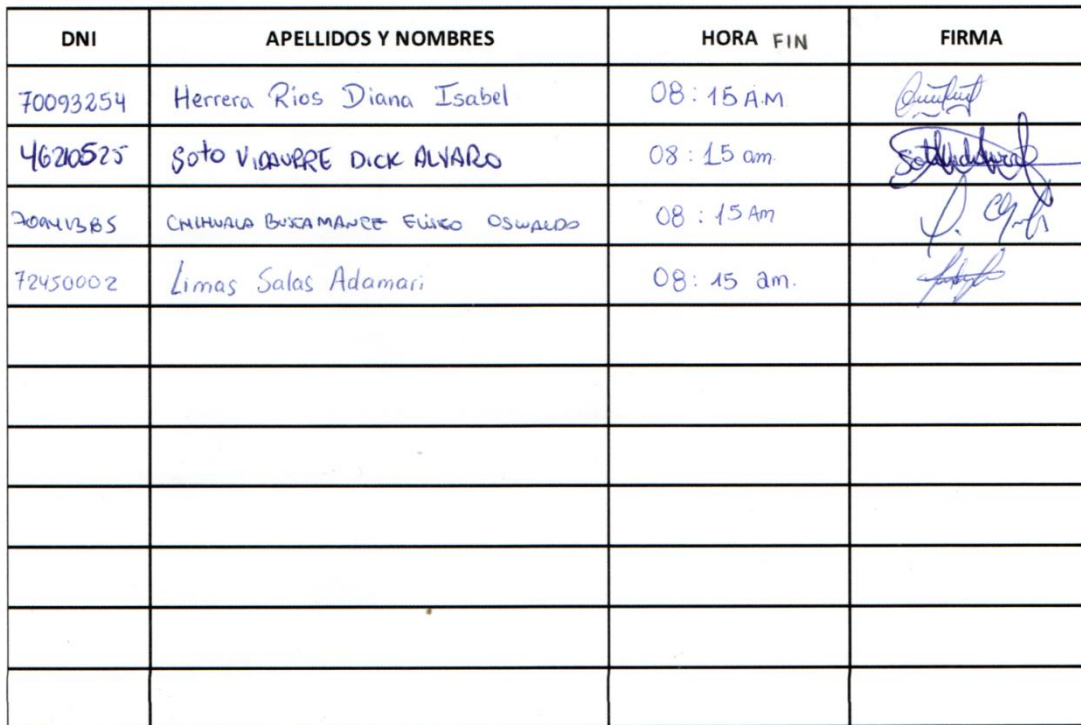 DNI APELLIDOS Y NOMBRES HORA FIN FIRMA
70093254 Herrera Rios Diana Isabel 08:15 A.M
46210525 Soto VIDAURRE DICK ALVARO 08:15 am.
CHIHUALA 08:15 Am
72450002 Limas Salas Adamari 08:15 am.